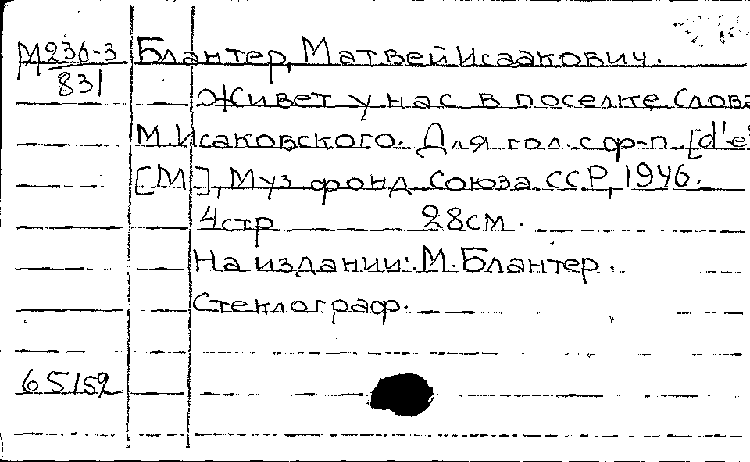 М236-3 Блантер, Матвей Исаакович.
831
Живет у нас в поселке. Слова
М. Исаковского. Для гол. с ф-п. [d'-e
[М], Муз фонд Союза ССР, 1946.
4 стр 28 см.
На издании: М. Блантер.
Стеклограф.
65159